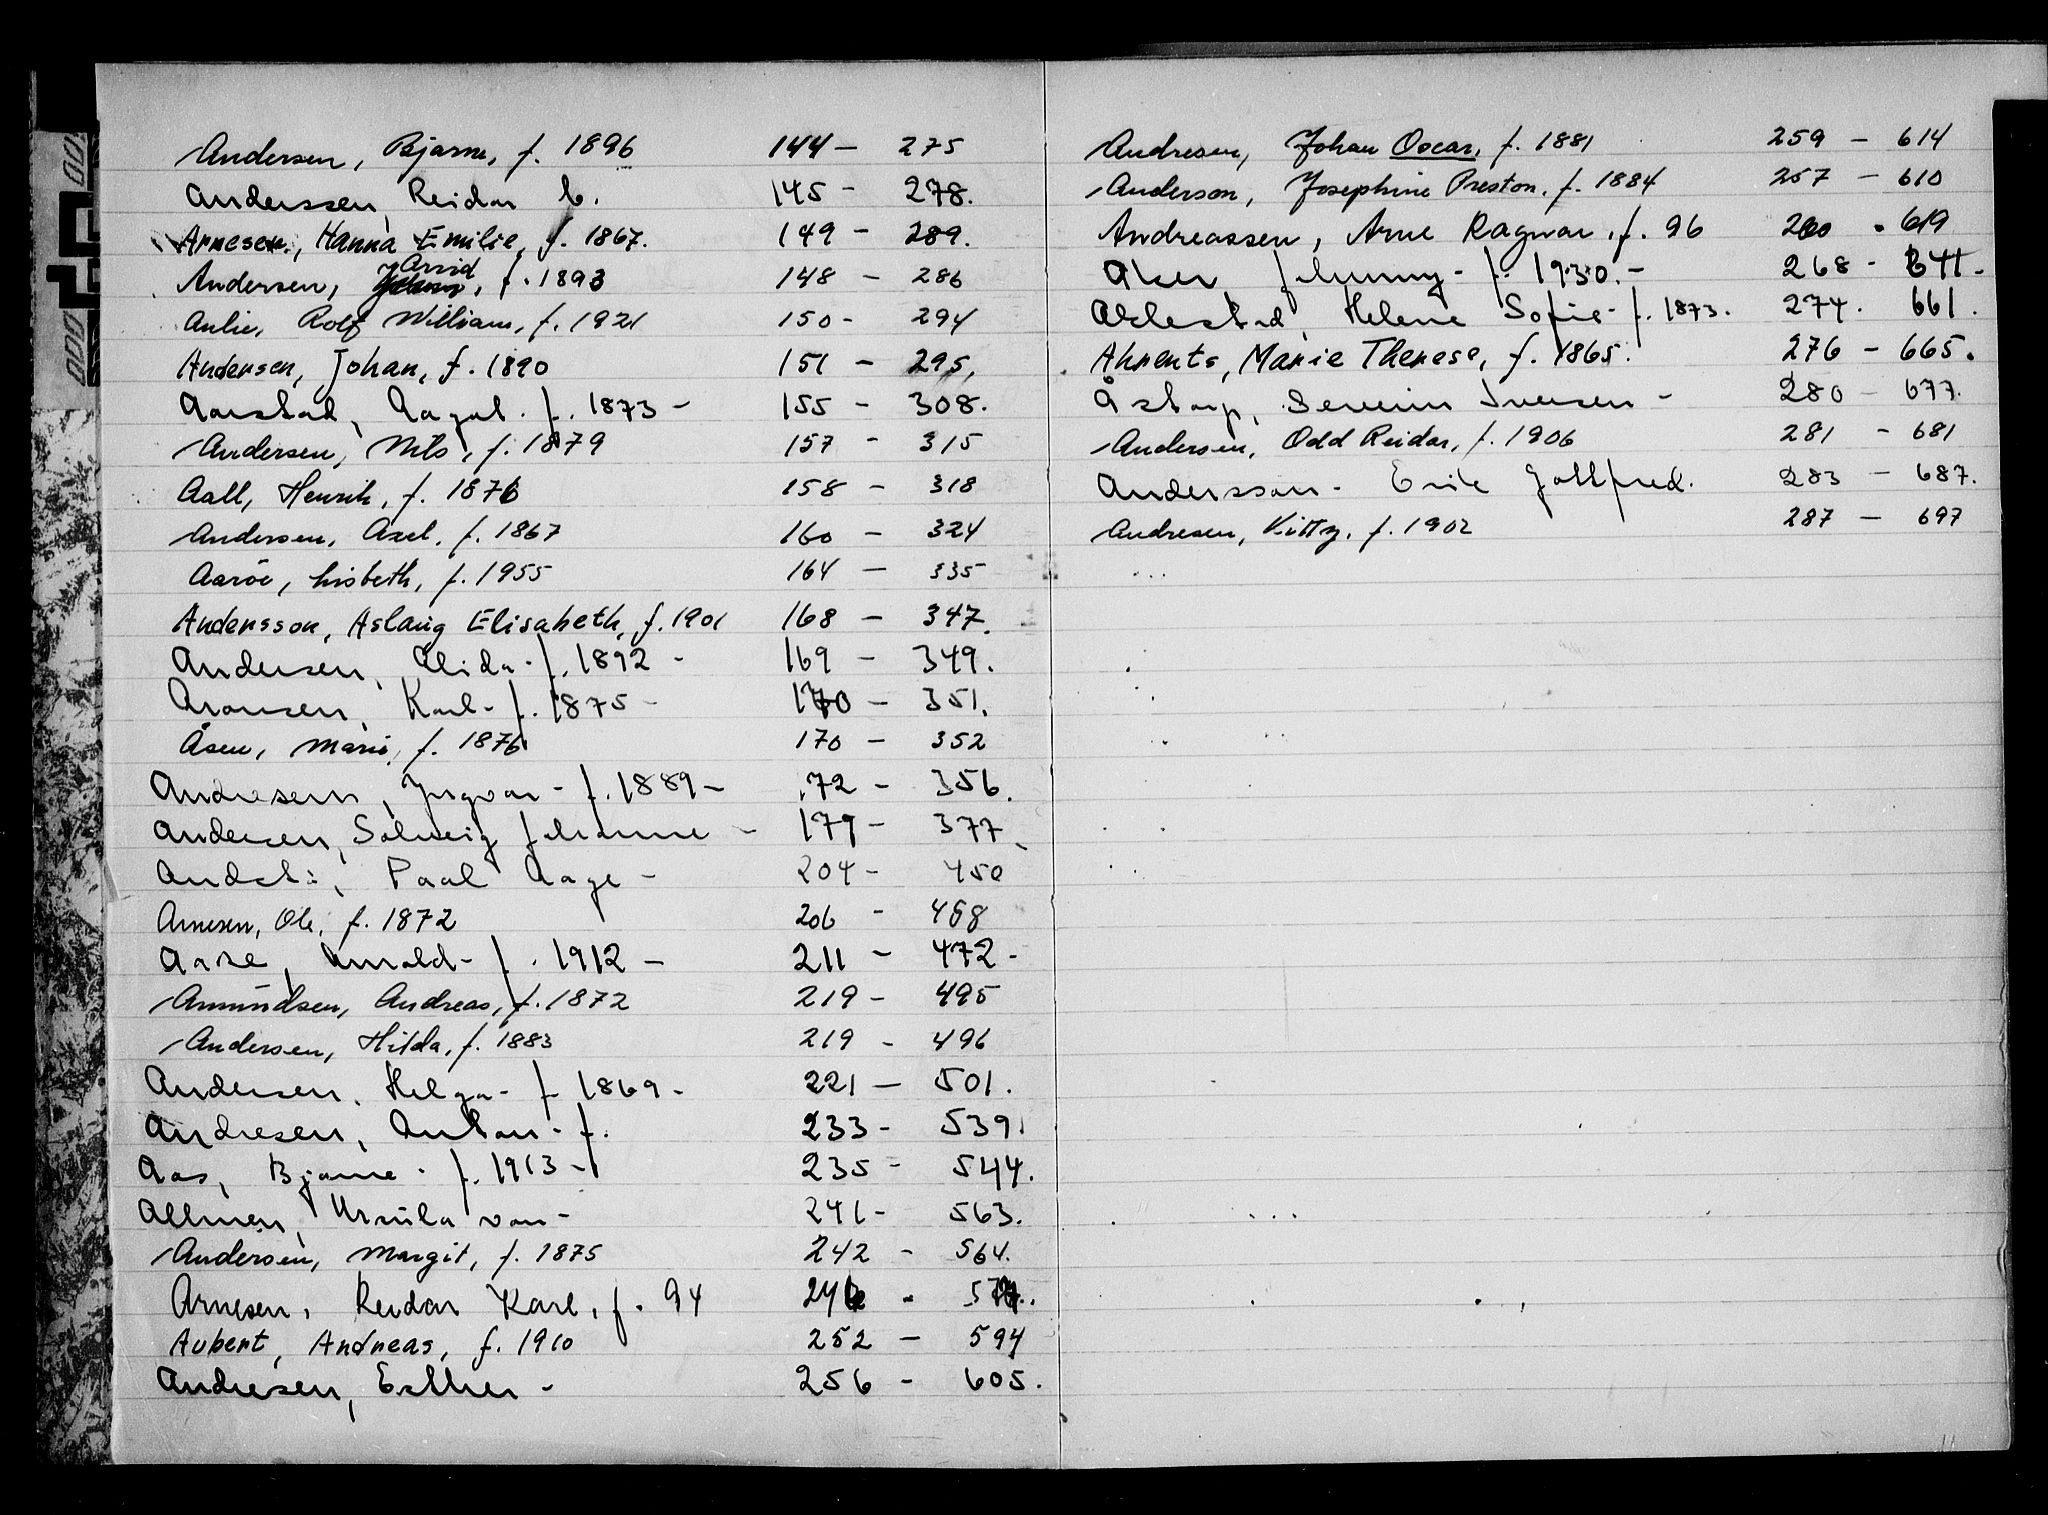 Andersen, Bjarne, f. 1896 144 - 275
Anderssen, Reidar C. 145 - 278.
Arnesen, Hanna Emilie, f. 1867. 149 - 289.
Arvid
Andersen, f. 1893 148 - 286
Anlie, Rolf William, f. 1921 150 - 294
Andersen, Johan, f. 1890 151 - 295.
Aarstad, Aagot. f. 1873 - 155 - 308.
Andersen, Nils, f. 1879 157 - 315
Aall, Henrik, f. 1876 158 - 318
Andersen, Axel, f. 1867 160 - 324
Aaröe, Lisbeth, f. 1955 164 - 335
Andersson, Aslaug Elisabeth, f. 1901 168 - 347.
Andersen, Alida - f. 1892 - 169 - 349.
Aronsen, Karl - f. 1875 - 170 - 351.
Åsen, Marie, f. 1876 170 - 352
Andresen, Yngvar - f. 1889 - 172 - 356.
Andersen, Solveig Johanne - 179 - 377
Paal Aage - 204 - 450
Arnesen, Ole, f. 1872 206 - 458
Aase, Arnold - f. 1912 - 211 - 472 -
Amundsen, Andreas, f. 1872 219 - 495
Andersen, Hilda, f. 1883 219 - 496
Andersen, Helga - f. 1869 - 221 - 501.
Andresen, Anton - f. 233 - 539.
Aas, Bjarne - f. 1913 - 235 - 544.
Allmen, Ursula von - 241 - 563.
Andersen, Margit, f. 1875 242 - 564.
Arnesen, Reidar Karl, f. 94 246 -
Aubert, Andreas, f. 1910 252 - 594
Andresen, Esther - 256 - 605.
Andresen, Johan Oscar, f. 1881 259 - 614
Anderson, Josephine Preston, f. 1884 257 - 610
Andreassen, Arne Ragnar, f. 96 260 - 619
Aker Johnny - f. 1930. - 268 - 641.
Helene Sofie - f. 1873. 274. 661.
Ahrents, Marie Therese, f. 1865. 276 - 665.
Åstorp, Severin Iversen - 280 - 677.
Andersen, Odd Reidar, f. 1906 281 - 681
Andersson - Erik Gottfred. 283 - 687.
Andresen, Kitty, f. 1902 287 - 697